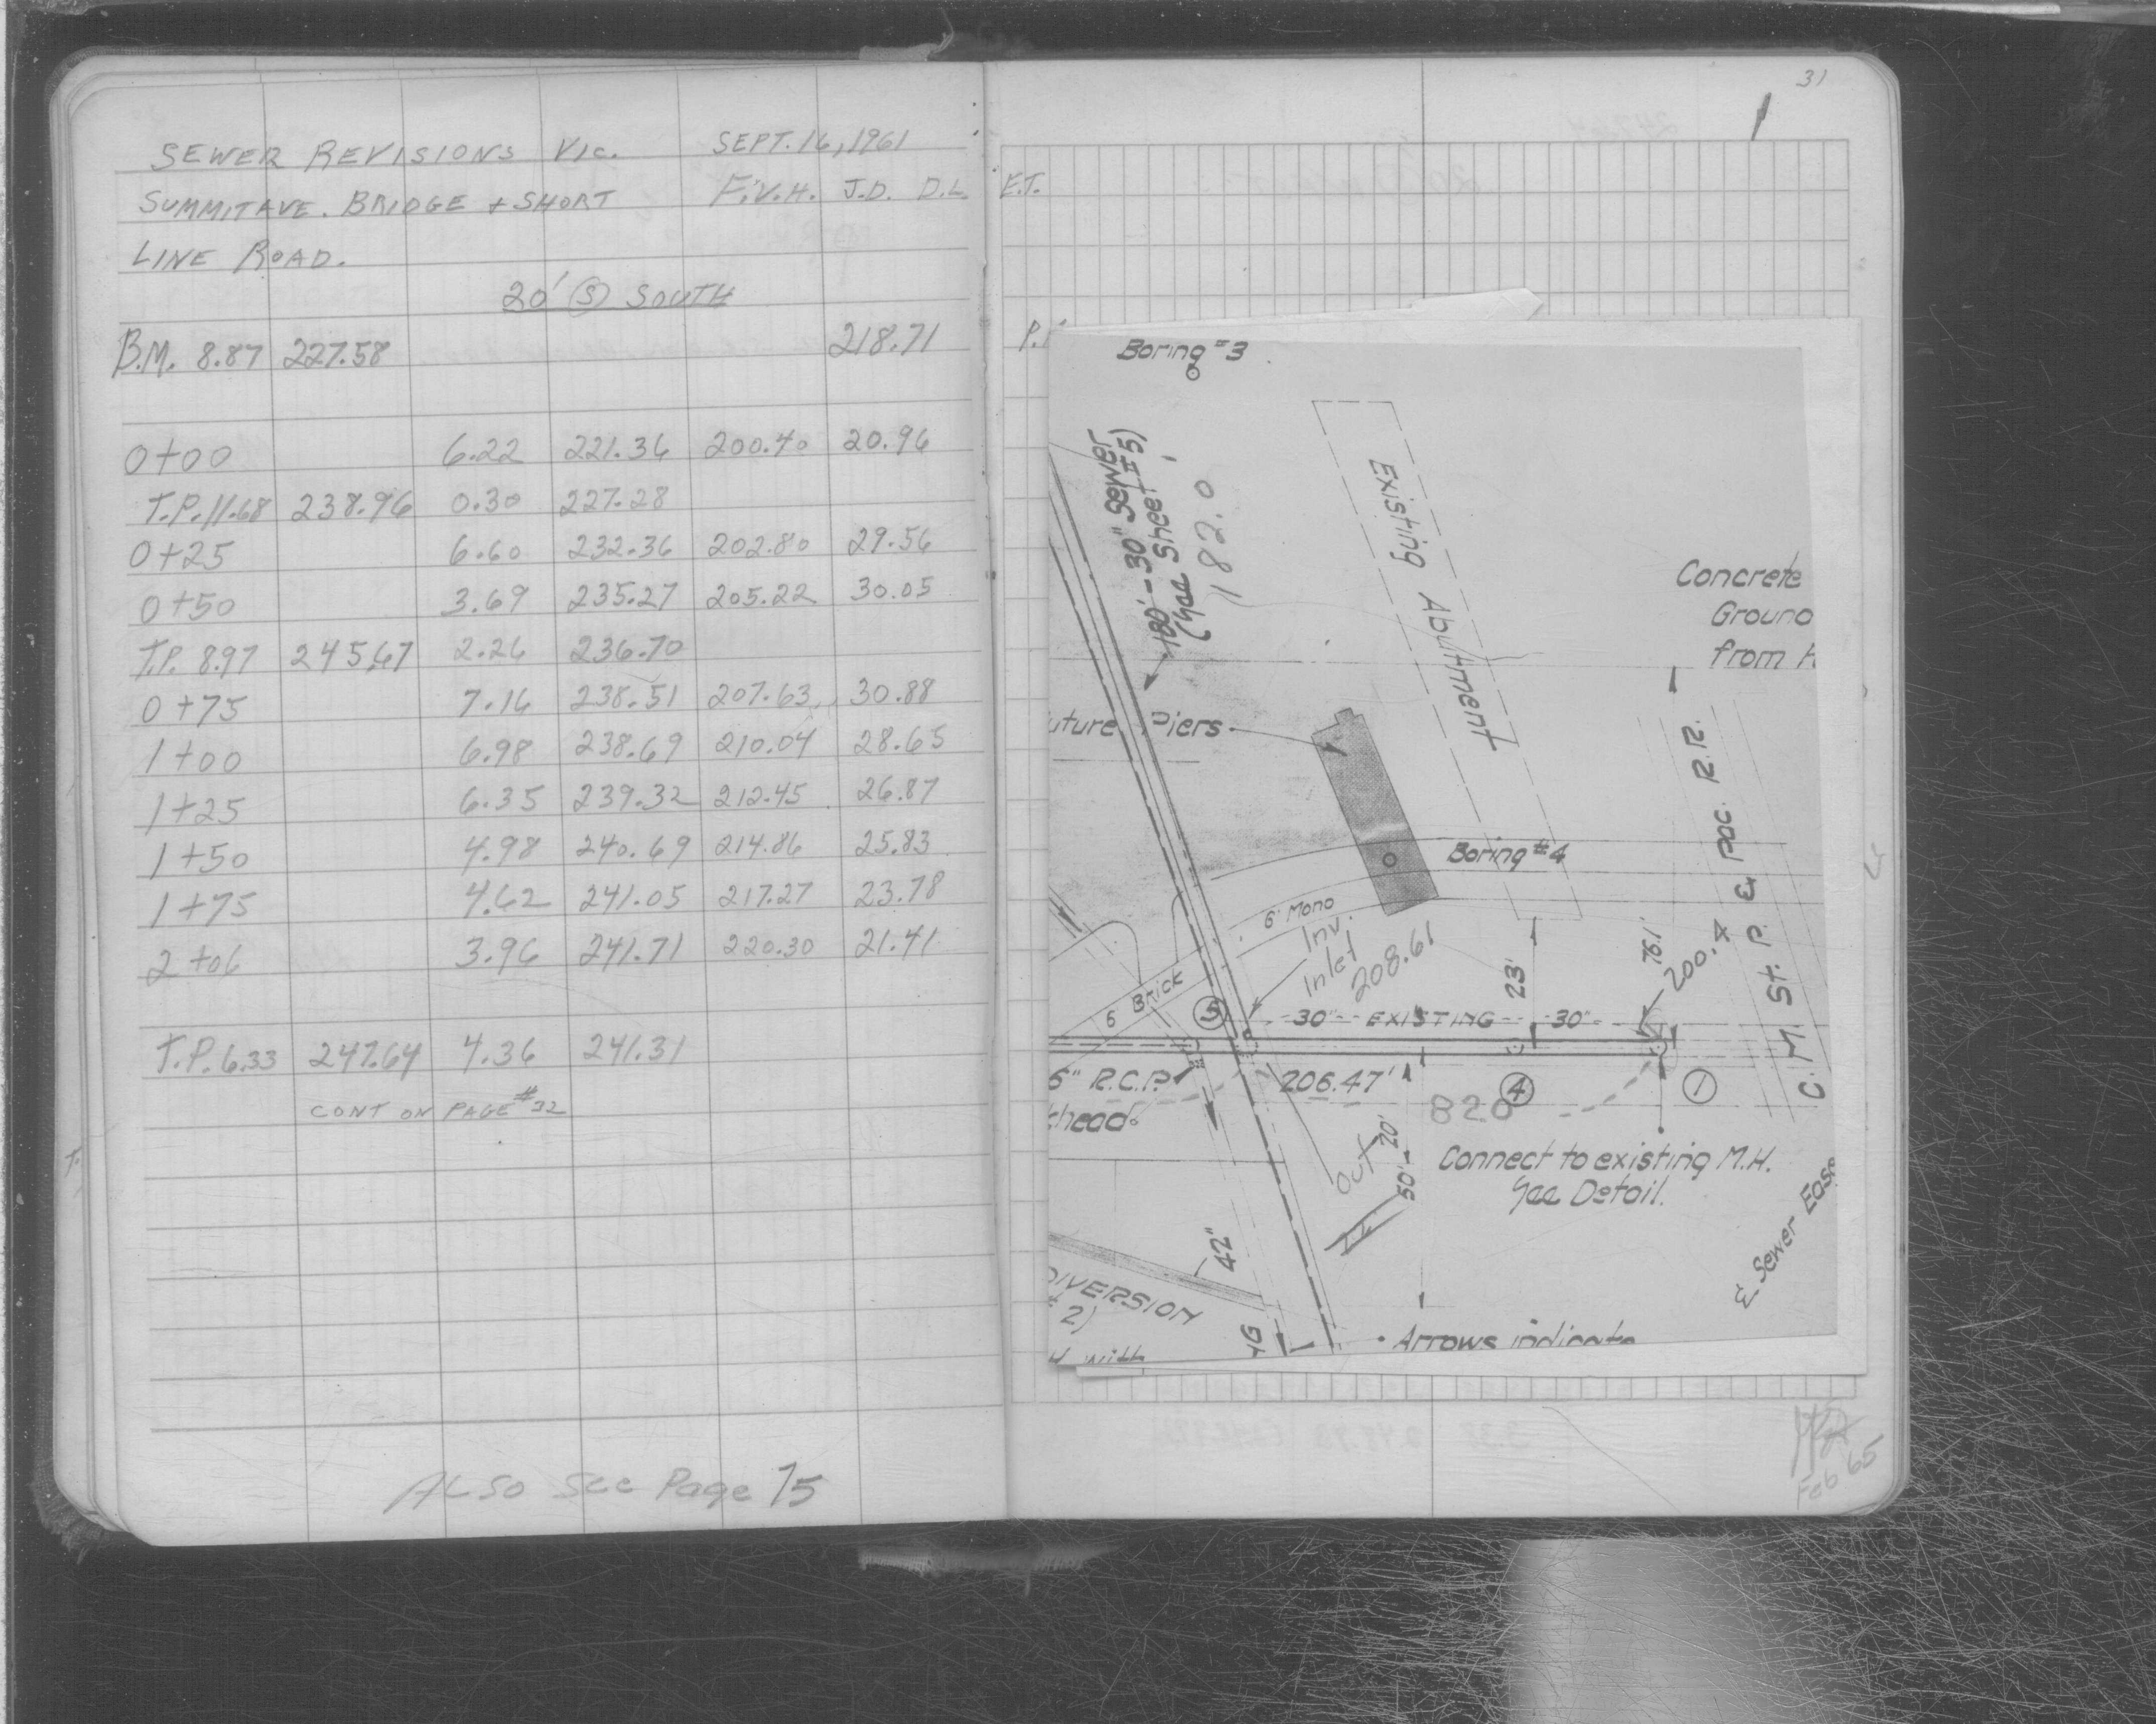 SEWER REVISIONS VIC. SEPT. 16, 1961
SUMMIT AVE. BRIDGE + SHORT F.V.H. J.D. D.L. E.T.
LINE ROAD.
20' (S) SOUTH
B.M. 8.87 227.58 218.71
0+00 6.22 221.36 200.40 20.96
T.P. 11.68 238.96 0.30 227.28
0+25 6.60 232.36 202.80 29.56
0+50 3.69 235.27 205.22 30.05
T.P. 8.97 245.67 2.26 236.70
0+75 7.16 238.51 207.63 30.88
1+00 6.98 238.69 210.04 28.65
1+25 6.35 239.32 212.45 26.87
1+50 4.98 240.69 214.86 25.83
1+75 4.62 241.05 217.27 23.78
2+06 3.96 241.71 220.30 21.41
T.P. 6.33 247.64 4.36 241.31
CONT ON PAGE #32
ALSO See Page 75
31
Boring #3
180'-30" Sewer
(See Sheet #5)
182.0
Existing Abutment
Concrete
Ground
from
uture Piers
Boring #4
6' Mono
Inv.
Inlet
208.61
6' Brick
5
23'
76.1'
200.4
C. M. St. P. & Pac. R.R.
30" EXISTING 30"
6" R.C.P.
khead
206.47'
4
1
820
Out
50'-20'
Connect to existing M.H.
See Detail.
42"
DIVERSION
# 2)
with
℄ Sewer Ease
Arrows indicate
Feb 65